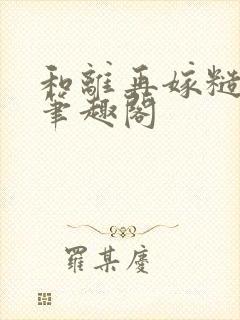 和離再嫁糙
筆趣閣
羅某慶